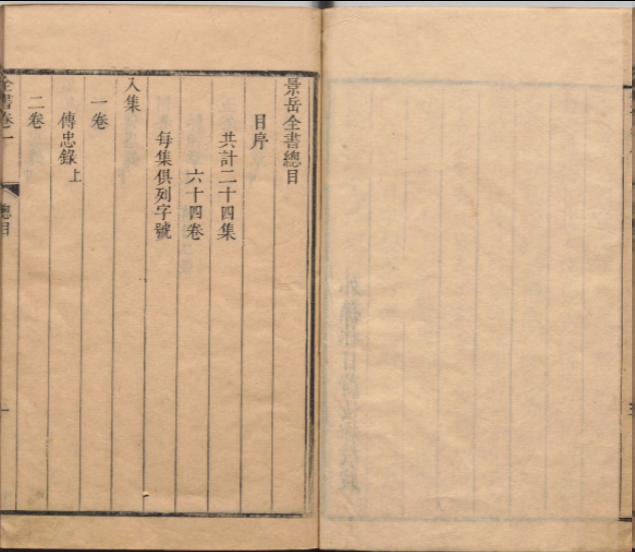 景岳全書總目
目序
共計二十四集
六十四卷
每集俱列字號
入集
一卷
傳忠錄上
二卷
全書卷一
總目
一